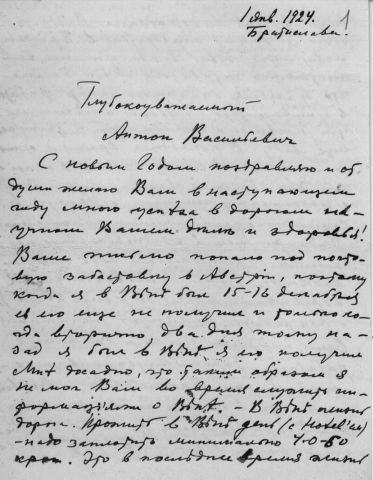 1 янв. 1924. 1
Братислава.
Глубокоуважаемый
Антон Васильевич
С новым Годом поздравляю и от
души желаю Вам в наступающем
году много успеха в дорогом на-
учном Вашем деле и здоровья!
Ваше письмо попало под почто-
вую забастовку в Австрiи, поэтому
когда я в Вѣнѣ был 15-16 декабря
я его еще не получил и только ко-
гда вторично два дня тому на-
зад я был в Вѣнѣ я его получил
Мнѣ досадно, что таким образом я
не мог Вам во время служить ин-
формацiями о Вѣнѣ. — В Вѣнѣ жизнь
дорога. Прожить в Вѣнѣ день (с Hotel'ем)
— надо заплатить минимально 40-50
крон. Это в последнее время жизнь